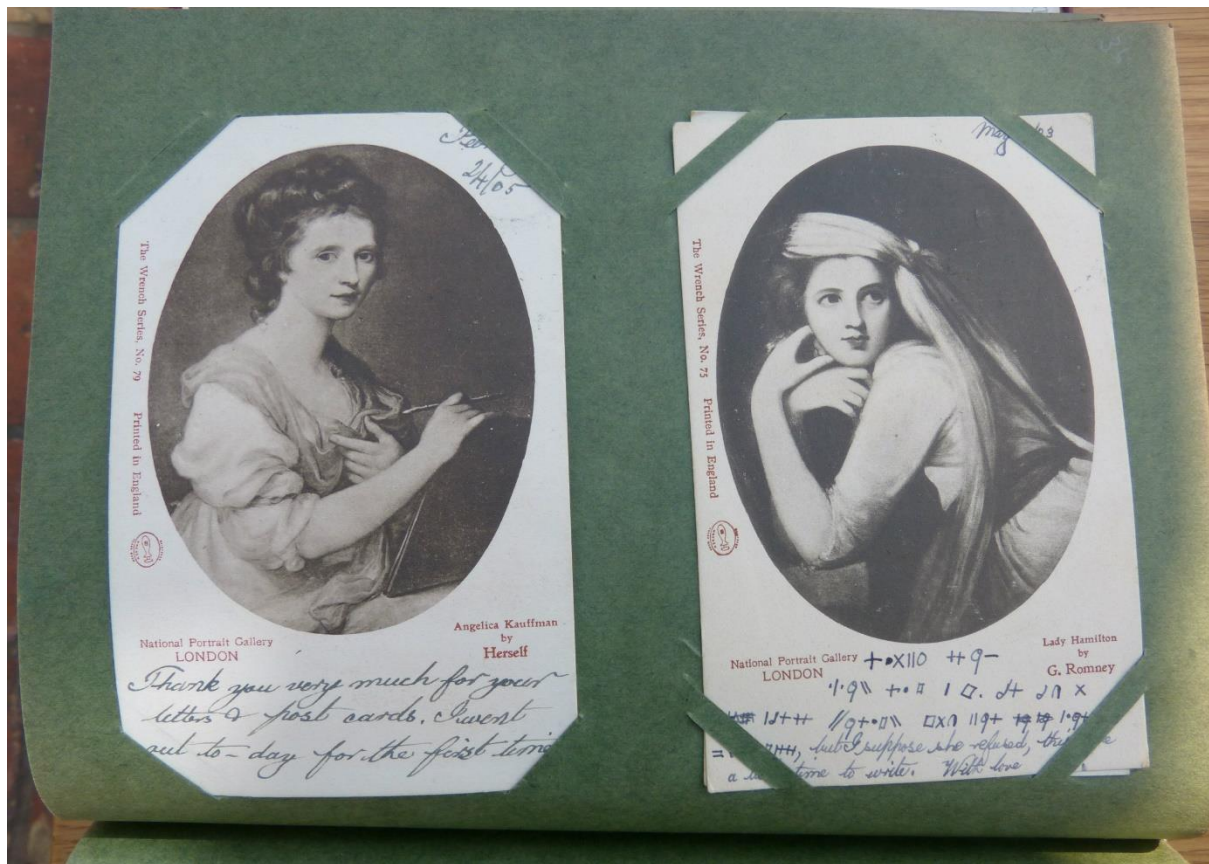 24/05
The Wrench Series, No. 79 Printed in England
National Portrait Gallery
LONDON
Angelica Kauffman
by
Herself
Thank you very much for your
letters & post cards. I went
out to-day for the first time
May /03
The Wrench Series, No. 75 Printed in England
National Portrait Gallery
LONDON
Lady Hamilton
by
G. Romney
but I suppose she refused,
a time to write. With love